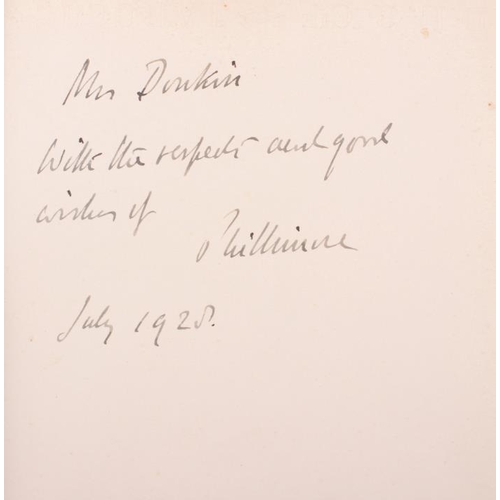 Mrs Donkin
With the respects and good
wishes of
Phillimore
July 1928.